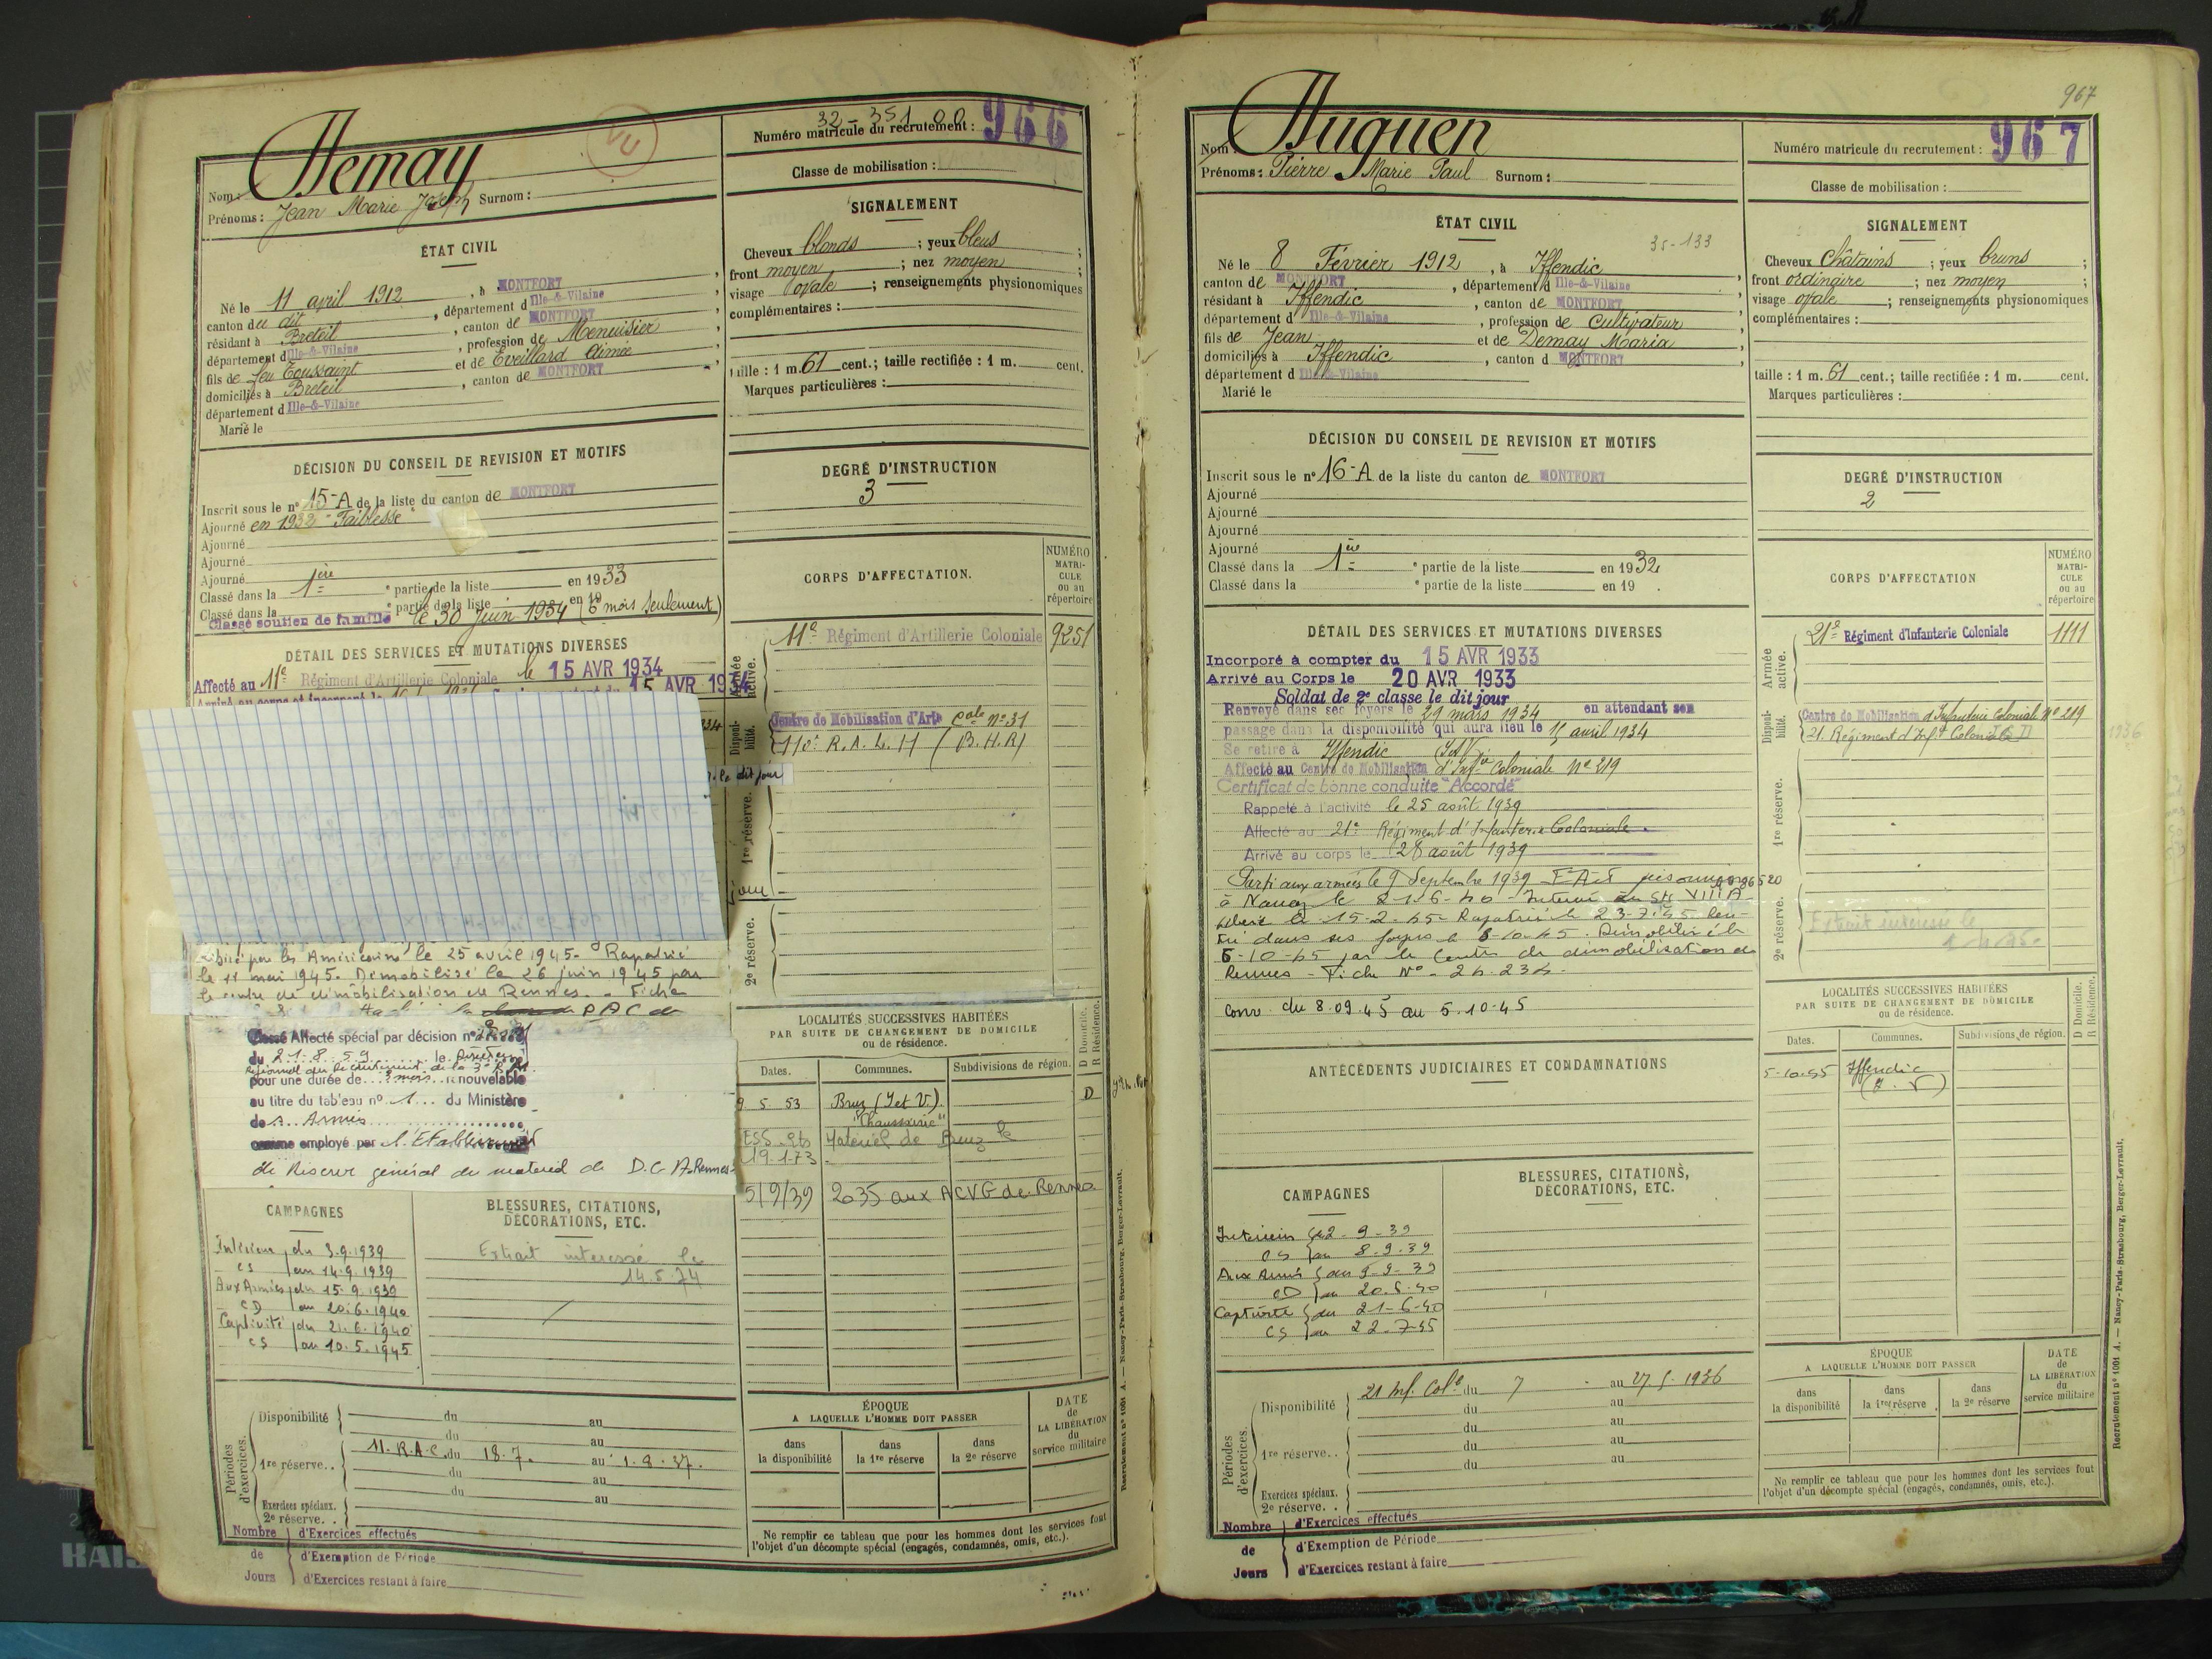 32-351 00
VU
Numéro matricule du recrutement : 966
Classe de mobilisation :
Nom : Hemay
Prénoms : Jean Marie Joseph Surnom :
ÉTAT CIVIL
Né le 11 avril 1912, à MONTFORT
canton du dit, département d Ille-&-Vilaine
résidant à Breteil, canton de MONTFORT
département d Ille-&-Vilaine, profession de Menuisier
fils de feu Toussaint et de Eveillard Aimée
domiciliés à Breteil, canton de MONTFORT
département d Ille-&-Vilaine
Marié le
SIGNALEMENT
Cheveux blonds ; yeux bleus ;
front moyen ; nez moyen ;
visage ovale ; renseignements physionomiques
complémentaires :
taille : 1 m. 61 cent.; taille rectifiée : 1 m. cent.
Marques particulières :
DÉCISION DU CONSEIL DE REVISION ET MOTIFS
Inscrit sous le n° 15-A de la liste du canton de MONTFORT
Ajourné en 1932 "Faiblesse"
Ajourné
Ajourné
Ajourné
Classé dans la 1ère partie de la liste en 1933
Classé dans la partie de la liste en 19
Classé soutien de famille le 30 Juin 1934 (6 mois seulement)
DEGRÉ D'INSTRUCTION
3
DÉTAIL DES SERVICES ET MUTATIONS DIVERSES
Affecté au 11e Régiment d'Artillerie Coloniale le 15 AVR 1934
15 AVR 1934
le dit jour
jour
Libéré par les Américains le 25 avril 1945. Rapatrié
le 11 mai 1945. Démobilisé le 26 juin 1945 par
le centre de démobilisation de Rennes. Fiche
P A C de
Classé Affecté spécial par décision n°
du 21.8.59 le Directeur
régional du recrutement de la 3e R.M.
pour une durée de 3 mois renouvelable
au titre du tableau n° 1 du Ministère
des Armées
comme employé par l'Etablissement
de Réserve général du matériel de D.C.A. Rennes
CORPS D'AFFECTATION.
NUMÉRO MATRICULE ou au répertoire
Armée active.
11e Régiment d'Artillerie Coloniale 9251
Disponibilité.
Centre de Mobilisation d'Artie Cale n° 31
110e R.A.L.H (B.H.R)
1re réserve.
2e réserve.
LOCALITÉS SUCCESSIVES HABITÉES
PAR SUITE DE CHANGEMENT DE DOMICILE
ou de résidence.
D Domicile.
R Résidence.
Dates. Communes. Subdivisions de région.
9 5 53 Bruz (I et V). D
"Chaussairie"
Matériel de Bruz le
19.1.73
5/9/39 2035 aux ACVG de Rennes
CAMPAGNES
Intérieur du 3.9.1939
CS au 14.9.1939
Aux Armées du 15.9.1939
CD au 20.6.1940
Captivité du 21.6.1940
CS au 10.5.1945
BLESSURES, CITATIONS,
DÉCORATIONS, ETC.
Extrait intéressé le
14.5.74
Périodes d'exercices.
Disponibilité du au
du au
1re réserve.. 11. R.A.C. du 18.7. au 1.8.37.
du au
du au
Exercices spéciaux.
2e réserve. .
Nombre de Jours
d'Exercices effectués
d'Exemption de Période
d'Exercices restant à faire
ÉPOQUE
A LAQUELLE L'HOMME DOIT PASSER
dans la disponibilité
dans la 1re réserve
dans la 2e réserve
DATE de LA LIBÉRATION du service militaire
Ne remplir ce tableau que pour les hommes dont les services font
l'objet d'un décompte spécial (engagés, condamnés, omis, etc.).
Recrutement n° 1001 A. — Nancy-Paris-Strasbourg, Berger-Levrault.
967
Numéro matricule du recrutement : 967
Classe de mobilisation :
Nom : Huguen
Prénoms : Pierre Marie Paul Surnom :
ÉTAT CIVIL
35-133
Né le 8 Février 1912, à Iffendic
canton de MONTFORT, département d Ille-&-Vilaine
résidant à Iffendic, canton de MONTFORT
département d Ille-&-Vilaine, profession de Cultivateur
fils de Jean et de Demay Maria
domiciliés à Iffendic, canton d MONTFORT
département d Ille-&-Vilaine
Marié le
SIGNALEMENT
Cheveux Châtains ; yeux bruns ;
front ordinaire ; nez moyen ;
visage ovale ; renseignements physionomiques
complémentaires :
taille : 1 m. 61 cent.; taille rectifiée : 1 m. cent.
Marques particulières :
DÉCISION DU CONSEIL DE REVISION ET MOTIFS
Inscrit sous le n° 16-A de la liste du canton de MONTFORT
Ajourné
Ajourné
Ajourné
Ajourné
Classé dans la 1ère partie de la liste en 1932
Classé dans la partie de la liste en 19 .
DEGRÉ D'INSTRUCTION
2
DÉTAIL DES SERVICES ET MUTATIONS DIVERSES
Incorporé à compter du 15 AVR 1933
Arrivé au Corps le 20 AVR 1933
Soldat de 2e classe le dit jour
Renvoyé dans ses foyers le 29 mars 1934 en attendant son
passage dans la disponibilité qui aura lieu le 15 avril 1934
Se retire à Iffendic I&V
Affecté au Centre de Mobilisation d'Infie Coloniale N° 219
Certificat de bonne conduite "Accordé"
Rappelé à l'activité le 25 août 1939
Affecté au 21e Régiment d'Infanterie Coloniale.
Arrivé au corps le 28 août 1939
Parti aux armées le 9 Septembre 1939 Fait prisonnier
à Nancy le 21-6-40 - Interné au St VIII A
Libéré le 15-2-45 - Rapatrié le 23-7-45 Ren-
tré dans ses foyers le 6-10-45. Démobilisé le
6-10-45 par le Centre de démobilisation de
Rennes - Fiche N° 24.234.
Conv. du 8.09.45 au 5.10.45
CORPS D'AFFECTATION
NUMÉRO MATRICULE ou au répertoire
Armée active.
21e Régiment d'Infanterie Coloniale 1111
Disponibilité.
Centre de Mobilisation d'Infanterie Coloniale N° 219
21. Régiment d'Inft Coloniale
1936
1re réserve.
2e réserve.
Extrait intéressé le
ANTÉCÉDENTS JUDICIAIRES ET CONDAMNATIONS
LOCALITÉS SUCCESSIVES HABITÉES
PAR SUITE DE CHANGEMENT DE DOMICILE
ou de résidence.
D Domicile.
R Résidence.
Dates. Communes. Subdivisions de région.
5-10-45 Iffendic
(I. V)
CAMPAGNES
Intérieur du 2-9-39
CS au 8-9-39
Aux Armées du 9-9-39
CD au 20-6-40
Captivité du 21-6-40
CS au 22-7-45
BLESSURES, CITATIONS,
DÉCORATIONS, ETC.
Périodes d'exercices.
Disponibilité 21 Inf. Cole du 7 au 27 5 1936
du au
du au
1re réserve.. du au
du au
Exercices spéciaux.
2e réserve. .
Nombre de Jours
d'Exercices effectués
d'Exemption de Période
d'Exercices restant à faire
ÉPOQUE
A LAQUELLE L'HOMME DOIT PASSER
dans la disponibilité
dans la 1re réserve
dans la 2e réserve
DATE de LA LIBÉRATION du service militaire
Ne remplir ce tableau que pour les hommes dont les services font
l'objet d'un décompte spécial (engagés, condamnés, omis, etc.).
Recrutement n° 1001 A. — Nancy-Paris-Strasbourg, Berger-Levrault.